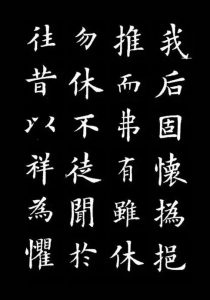 我后固懷撝挹
推而弗有雖休
勿休不徒聞於
往昔以祥為懼